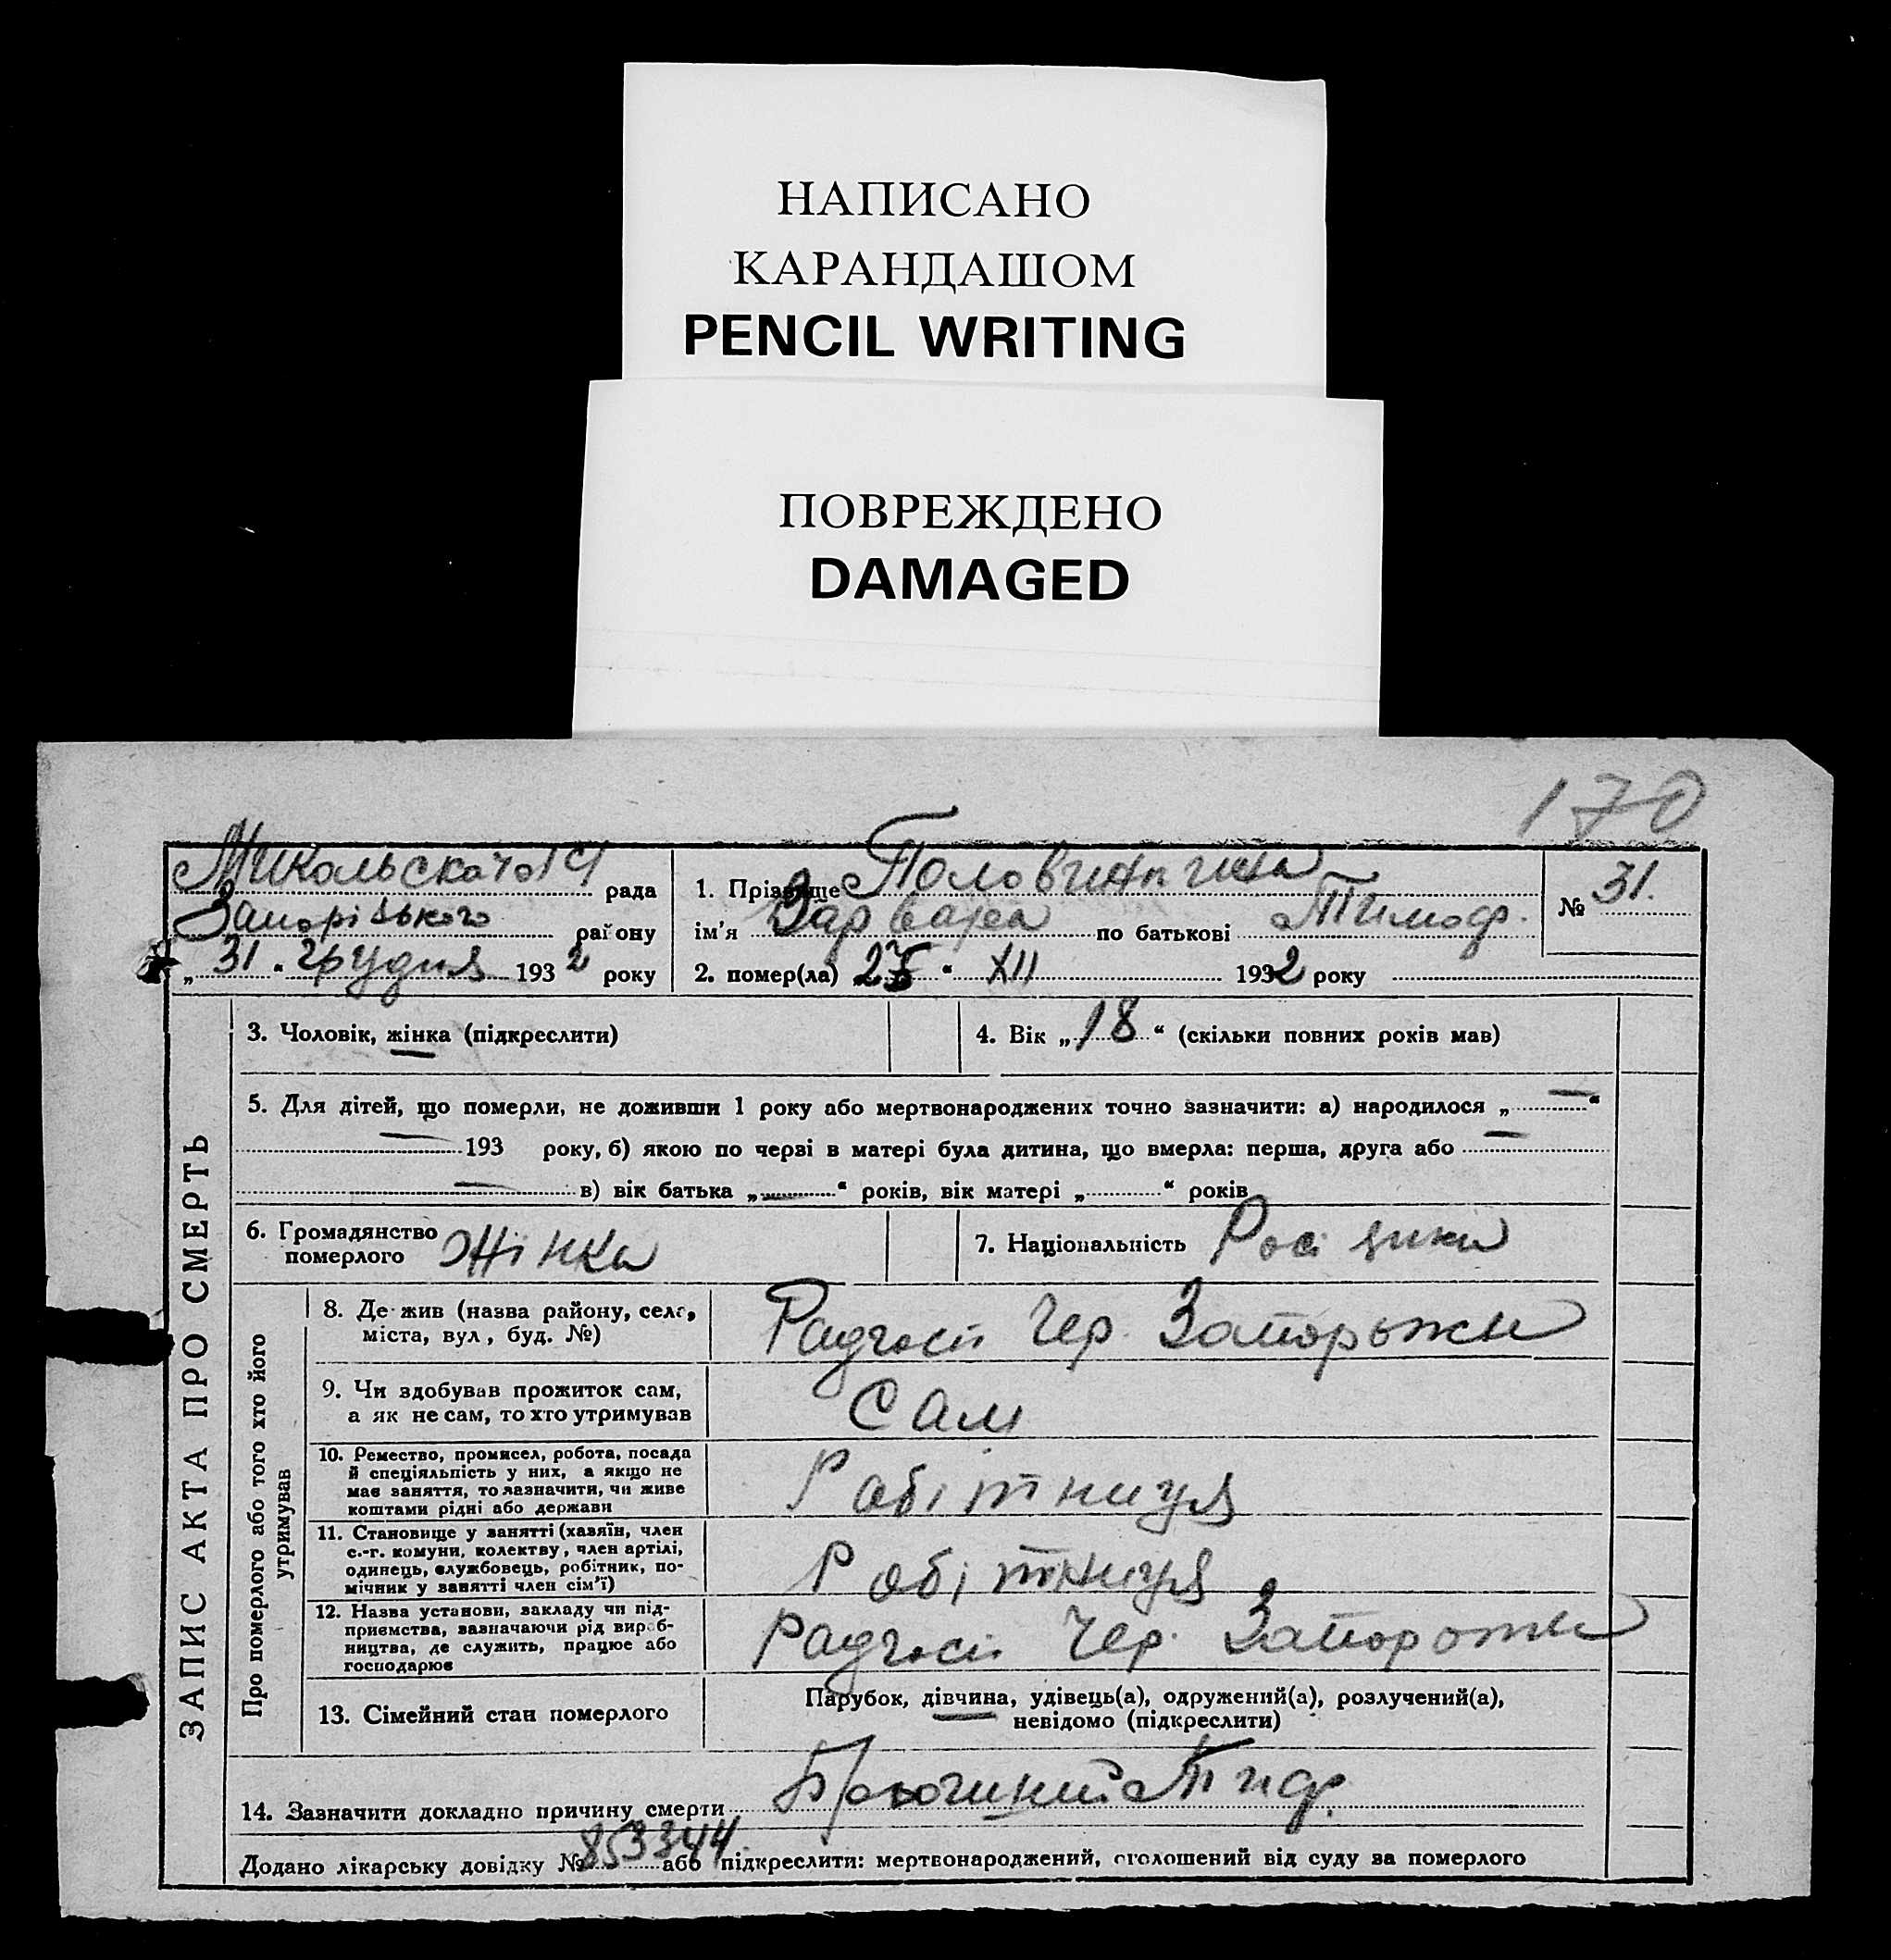 НАПИСАНО
КАРАНДАШОМ
PENCIL WRITING
ПОВРЕЖДЕНО
DAMAGED
170
рада
Запорізького району
„31“ грудня 1932 року
1. Прізвище
ім'я Варвара по батькові Тимоф.
2. помер(ла) “ XII 1932 року
№ 31.
ЗАПИС АКТА ПРО СМЕРТЬ
3. Чоловік, жінка (підкреслити)
4. Вік „18“ (скільки повних рохів мав)
5. Для дітей, що померли, не доживши 1 року або мертвонароджених точно зазначити: а) народилося „—“
— 193 року, б) якою по черзі в матері була дитина, що вмерла: перша, друга або —
— в) вік батька „—“ років, вік матері „ “ років
6. Громадянство
померлого Жінка
7. Національність
Про померлого або того хто його
утримував
8. Де жив (назва району, села,
міста, вул, буд. №)
Радгосп Чер. Запорьжжи
9. Чи здобував прожиток сам,
а як не сам, то хто утримував
Сам
10. Ремество, промисел, робота, посада
й спеціяльність у них, а якщо не
має заняття, то зазначити, чи живе
коштами рідні або держави
Робітниця
11. Становище у занятті (хазяїн, член
с.-г. комуни, колектву, член артілі,
одинець, службовець, робітник, по-
мічник у занятті член сім'ї)
Робітниця
12. Назва установи, закладу чи під-
приємства, зазначаючи рід вироб-
ництва, де служить, працює або
господарює
Радгосп Чер. Запорожжи
13. Сімейний стан померлого
Парубок, дівчина, удівець(а), одружений(а), розлучений(а),
невідомо (підкреслити)
14. Зазначити докладно причину смерти Брюшний Тиф.
Додано лікарську довідку № 853344 або підкреслити: мертвонароджений, оголошений від суду за померлого